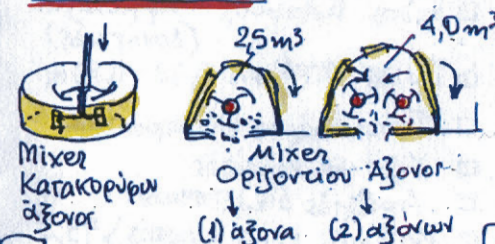 2,5 m³
4,0 m³
Mixer
Κατακορύφου
άξονα
Mixer
Οριζοντίου Άξονος
(1) άξονα
(2) αξόνων